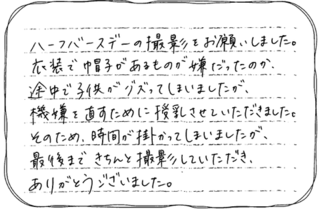 ハーフバースデーの撮影をお願いしました。
衣装で帽子があるものが嫌だったのか、
途中で子供がグズってしまいましたが、
機嫌を直すために授乳させていただきました。
そのため、時間が掛かってしまいましたが、
最後まできちんと撮影していただき、
ありがとうございました。